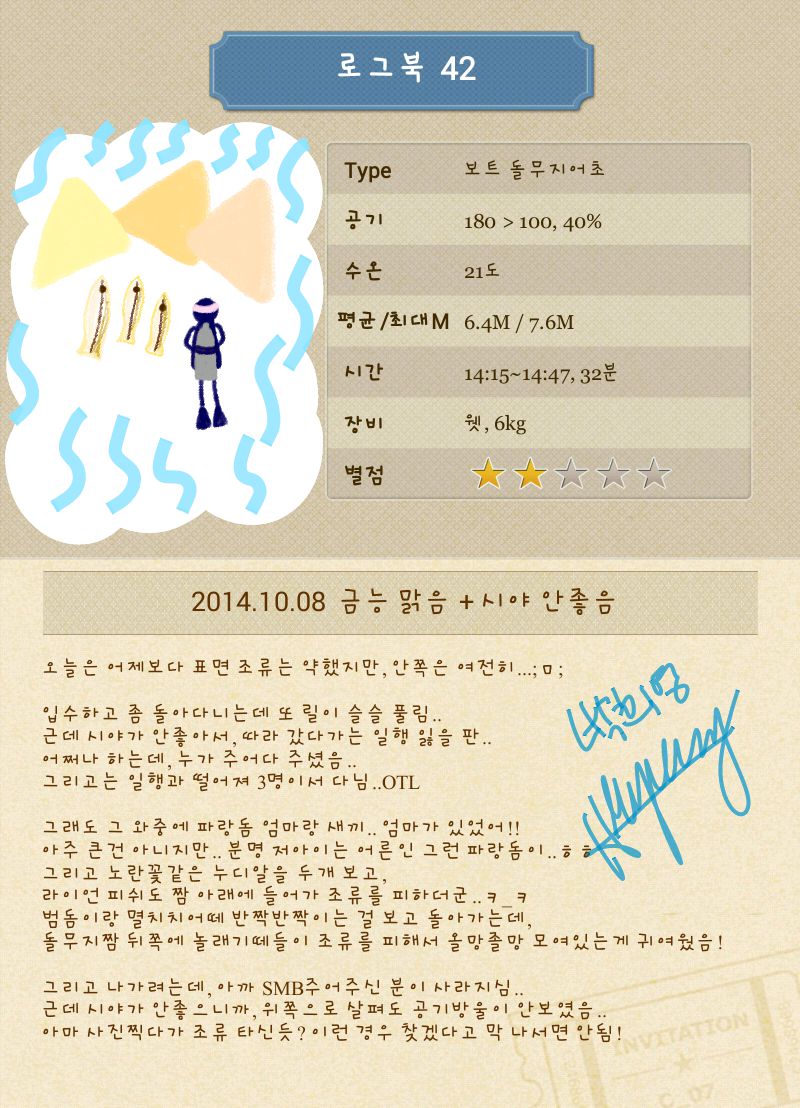 로그북 42
Type 보트 돌무지어초
공기 180 > 100, 40%
수온 21도
평균/최대M 6.4M / 7.6M
시간 14:15~14:47, 32분
장비 웻, 6kg
별점
2014.10.08 금능 맑음 + 시야 안좋음
오늘은 어제보다 표면 조류는 약했지만, 안쪽은 여전히...;ㅁ;
입수하고 좀 돌아다니는데 또 릴이 슬슬 풀림..
근데 시야가 안좋아서, 따라 갔다가는 일행 잃을 판..
어쩌나 하는데, 누가 주어다 주셨음..
그리고는 일행과 떨어져 3명이서 다님..OTL
그래도 그 와중에 파랑돔 엄마랑 새끼.. 엄마가 있었어!!
아주 큰건 아니지만.. 분명 저아이는 어른인 그런 파랑돔이..ㅎㅎ
그리고 노란꽃같은 누디알을 두개 보고,
라이언 피쉬도 짬 아래에 들어가 조류를 피하더군..ㅋ_ㅋ
범돔이랑 멸치치어떼 반짝반짝이는 걸 보고 돌아가는데,
돌무지짬 뒤쪽에 놀래기떼들이 조류를 피해서 올망졸망 모여있는게 귀여웠음!
그리고 나가려는데, 아까 SMB주어주신 분이 사라지심..
근데 시야가 안좋으니까, 위쪽으로 살펴도 공기방울이 안보였음..
아마 사진찍다가 조류 타신듯? 이런 경우 찾겠다고 막 나서면 안됨!
INVITATION
C_07